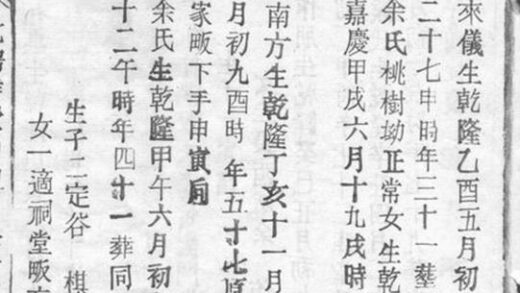 來儀生乾隆乙酉五月初
二十七申時年三十一葬
余氏桃樹坳正常女生乾
嘉慶甲戌六月十九戌時
南方生乾隆丁亥十一月
月初九酉時 年五十七
家畈下手申寅向
余氏生乾隆甲午六月初
十二午時年四十一葬同
生子二定谷 棋
女一適祠堂畈